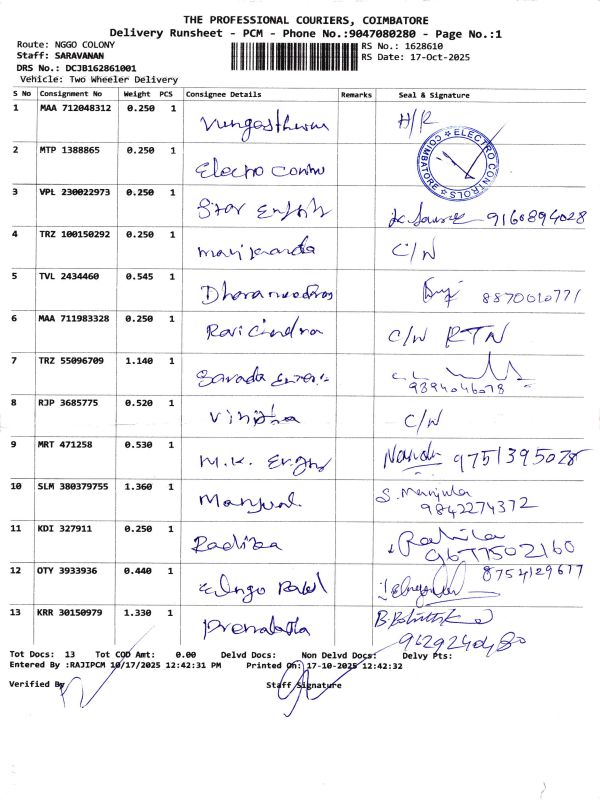 THE PROFESSIONAL COURIERS, COIMBATORE
Delivery Runsheet - PCM - Phone No.:9047080280 - Page No.:1
Route: NGGO COLONY
Staff: SARAVANAN
DRS No.: DCJB162861001
Vehicle: Two Wheeler Delivery
RS No.: 1628610
RS Date: 17-Oct-2025
S No Consignment No Weight PCS Consignee Details Remarks Seal & Signature
1 MAA 712048312 0.250 1 H/R
2 MTP 1388865 0.250 1 Electro
ELECTRO CONTROLS COIMBATORE
3 VPL 230022973 0.250 1 Star 9160894028
4 TRZ 100150292 0.250 1 C/N
5 TVL 2434460 0.545 1 8870010771
6 MAA 711983328 0.250 1 Ravi C/N RTN
7 TRZ 55096709 1.140 1 Sarada
9394046078
8 RJP 3685775 0.520 1 C/N
9 MRT 471258 0.530 1 M.K. 9751395028
10 SLM 380379755 1.360 1 S. Manjula
9842274372
11 KDI 327911 0.250 1 Radika
9677502160
12 OTY 3933936 0.440 1 8754129677
13 KRR 30150979 1.330 1 Premalatha
9629240480
Tot Docs: 13 Tot COD Amt: 0.00 Delvd Docs: Non Delvd Docs: Delvy Pts:
Entered By :RAJIPCM 10/17/2025 12:42:31 PM Printed On: 17-10-2025 12:42:32
Verified By Staff Signature